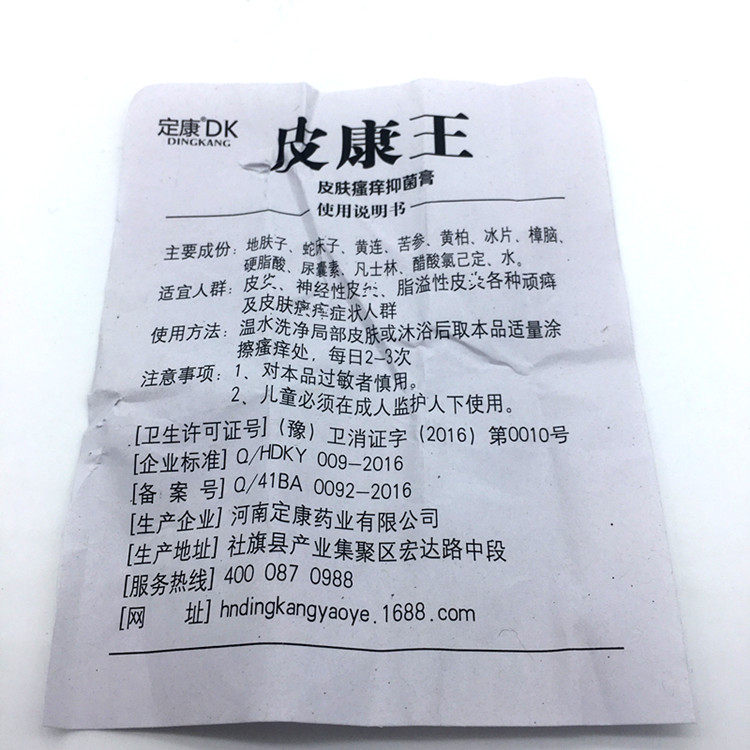 定康®DK
DINGKANG
皮康王
皮肤瘙痒抑菌膏
使用说明书
主要成份：地肤子、蛇床子、黄连、苦参、黄柏、冰片、樟脑、
硬脂酸、尿囊素、凡士林、醋酸氯己定、水。
适宜人群：皮炎、神经性皮炎、脂溢性皮炎各种顽癣
及皮肤瘙痒症状人群
使用方法：温水洗净局部皮肤或沐浴后取本品适量涂
擦瘙痒处，每日2-3次
注意事项：1、对本品过敏者慎用。
2、儿童必须在成人监护人下使用。
[卫生许可证号]（豫）卫消证字（2016）第0010号
[企业标准] Q/HDKY 009-2016
[备 案 号] Q/41BA 0092-2016
[生产企业] 河南定康药业有限公司
[生产地址] 社旗县产业集聚区宏达路中段
[服务热线] 400 087 0988
[网 址] hndingkangyaoye.1688.com